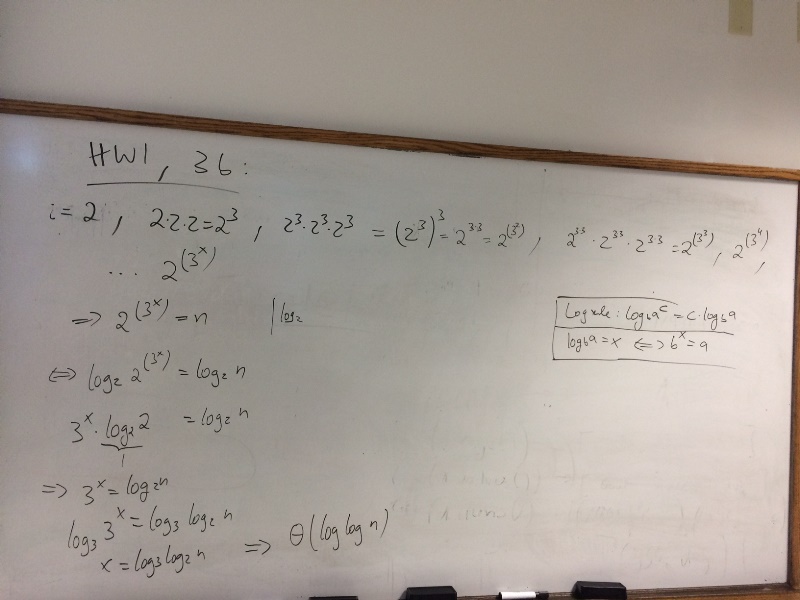 HW1, 3b:
i=2, 2·2·2=2³, 2³·2³·2³ = (2³)³ = 2^(3·3) = 2^(3²), 2^(3·3)·2^(3·3)·2^(3·3) = 2^(3³), 2^(3⁴),
... 2^(3^x)
=> 2^(3^x) = n | log₂
<=> log₂ 2^(3^x) = log₂ n
3^x · log₂ 2 = log₂ n
1
=> 3^x = log₂ n
log₃ 3^x = log₃ log₂ n
x = log₃ log₂ n => Θ(log log n)
Log rule: log_b a^c = c·log_b a
log_b a = x <=> b^x = a